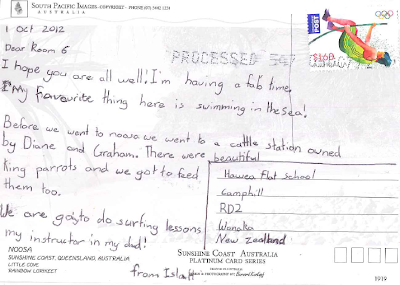 SOUTH PACIFIC IMAGES
AUSTRALIA
1 Oct 2012
POST
$1.60
PROCESSED
Dear Room 6
I hope you are all well! I'm having a fab time,
My favourite thing here is swimming in the Sea!
Before we went to noosa we went to a cattle station owned
by Diane and Graham. There were beautiful
King parrots and we got to feed
them too.
We are going to do surfing lessons
my instructor in my dad!
from Isla
Hawea Flat school
Camphill
RD2
Wanaka
New zealand
NOOSA
SUNSHINE COAST, QUEENSLAND, AUSTRALIA
LITTLE COVE
RAINBOW LORIKEET
SUNSHINE COAST AUSTRALIA
PLATINUM CARD SERIES
1919